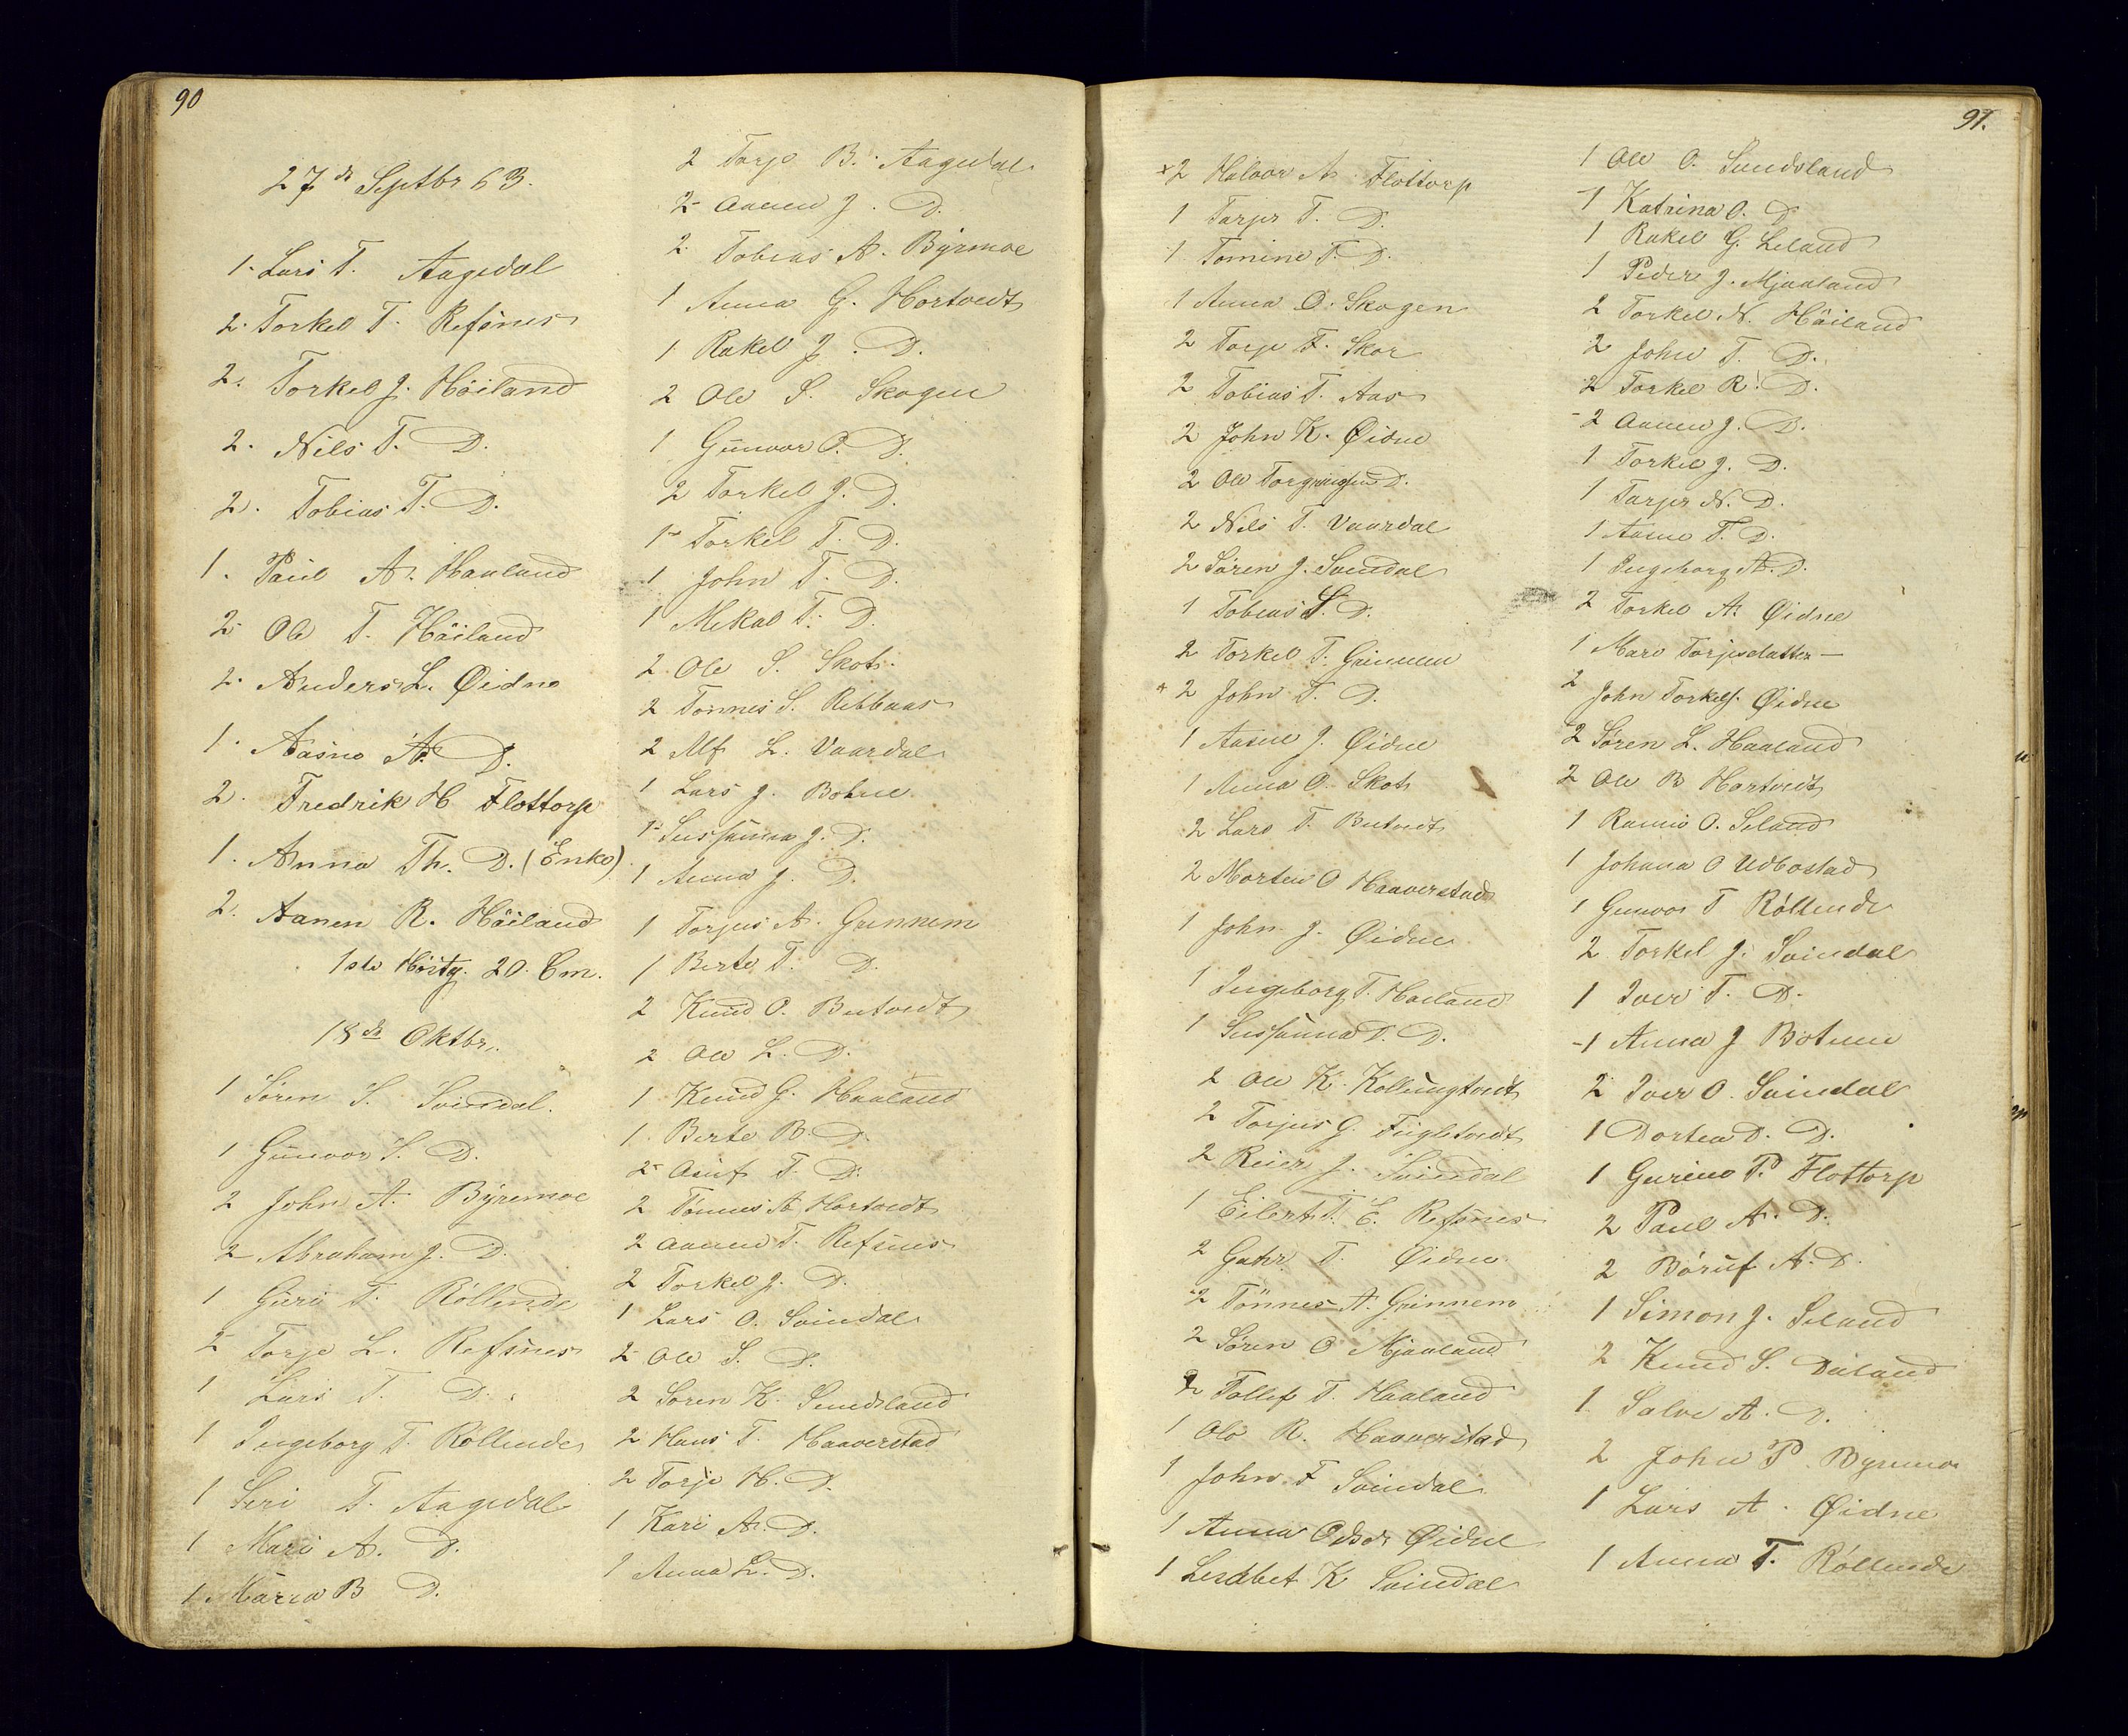 90
27de Septbr 63.
1. Lars T. Aagedal
2. Torkel T. Refsnes
2. Torkel J. Höiland
2. Nils T. D.
2. Tobias T. D.
1. Paul A. Haaland
2. Ole T. Höiland
2. Anders L. Øidne
1. Aasne A. D.
2. Fredrik H Flottorp
1. Anna Th. D. (Enke)
2. Aanen R. Höiland
1ste Höstg. 20 Cm.
18de Oktbr.
1 Sören S. Svindal.
1 Gunvor S. D.
2 John A. Byremoe
2 Abraham J. D.
1 Guri T. Röllende
2 Torje L. Refsnes
1 Lars T. D.
1 Ingeborg T. Röllende
1 Seri T. Aagedal
1 Mari A. D.
1. Maria B D.
2 Torje B. Aagedal
2 Aanen J. D.
2. Tobias A. Byrmoe
1 Anna G. Hortvedt
1 Rakel J. D.
2 Ole S. Skogen
1 Gunvor O. D.
2 Torkel J. D.
1 Torkel T. D.
1 John T. D.
1 Mikal T. D.
2 Ole S. Skot
2 Tönnes S. Rebbaas
2 Alf L. Vaardal
1 Lars J. Bohne
1 Sussanna J. D.
1 Anna J. D.
1 Torjus A. Grinnem
1 Berte T. D.
2 Knud O. Butvedt
2 Ole L. D.
1 Knud G. Haaland
1. Berte B. D.
2 Asuf T. D.
2 Tönnes A Hortvedt
2 Aanen T. Refsnes
2 Torkel J. D.
1 Lars O. Svindal
2 Ole S. D.
2 Sören K. Sundsland
2 Hans T. Haaverstad
2 Torje H. D.
1 Kari A. D.
1 Anna L. D.
91.
x2 Halvor A. Flottorp
1 Tarjer T. D.
1 Tomine T. D.
1 Anna O. Skogen
2 Torje F. Skor
2 Tobias T. Aas
2 John K. Øidne
2 Ole D.
2 Nils T. Vaardal
2 Sören J. Svindal
1 Tobias S. D.
2 Torkel T. Grinnem
x 2 John T. D.
1 Aasne J. Øidne
1 Anna O. Skot
2 Lars T. Butvedt
2 Morten O Haaverstad
1 John J. Øidne
1 Ingeborg T. Høiland
1 Sussanna T. D.
2 Ole K. Kollungtvedt
2 Torjus G. Fugletvedt
2 Reier J. Svindal
1 Eilert T. E. Refsnes
2 Gahr T. Øidne
2 Tönnes A. Grinnem
2 Sören O Mjaaland
2 Tollef T. Haaland
1 Ole R. Haaverstad
1 John F Svindal
1 Anna Øidne
1 Lisabet K Svindal
1 Ole O. Sundsland
1 Katrina O. D.
1 Rakel G. Leland
1 Peder J. Mjaaland
2 Torkel N. Höiland
2 John T. D.
2 Torkel R. D.
2 Aanen J. D.
1 Torkel J. D.
1 Tarjer N. D.
1 Aasne T. D.
1 Ingeborg A. D.
2 Torkel A. Øidne
1 Mari Torjesdatter —
2 John Torkels. Øidne
2 Søren L. Haaland
2 Ole B Hartvedt
1 O. Seland
1 Johana O Udbostad
1 Gunvor T Röllende
2 Torkel J. Svindal
1 Iver T. D.
1 Anna J Botnen
2 Iver O. Svindal
1 Dortea D. D.
1 Gurine P. Flottorp
2 Paul A. D.
2 Börüf A. D.
1 Simon J. Seland
2 Knud S. Duland
1 Salve A. D.
2 John P. Byremo
1 Lars A. Øidne
1 Anna T. Röllende